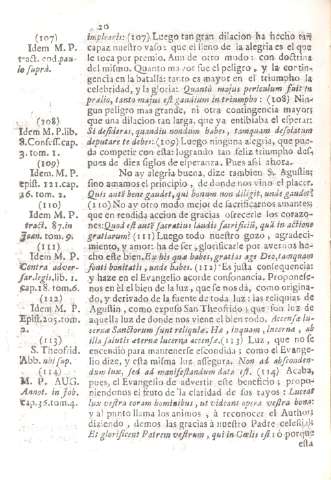 20
(107)
Idem M. P.
tract. eod. pau-
lo suprà.
(108)
Idem M. P. lib.
8. Confess. cap.
3. tom. 1.
(109)
Idem M. P.
Epist. 121. cap.
26. tom. 2.
(110)
Idem M. P.
tract. 87. in
Joan. tom. 9.
(111)
Idem M. P.
Contra adver-
sar. legis, lib. 1.
cap. 18. tom. 6.
(112)
Idem M. P.
Epist. 205. tom.
2.
(113)
S. Theofrid.
Abb. ubi sup.
(114)
M. P. AUG.
Annot. in Job.
cap. 36. tom. 4.
implearis: (107) Luego tan gran dilacion ha hecho tan
capaz nuestro vaso: que el lleno de la alegria es el que
le toca por premio. Aun de otro modo: con doctrina
del mismo. Quanto mayor fue el peligro, y la contin-
gencia en la batalla: tanto es mayor en el triumpho la
celebridad, y la gloria: Quantò majus periculum fuit in
prælio, tanto majus est gaudium in triumpho: (108) Nin-
gun peligro mas grande, ni otra contingencia mayor;
que una dilacion tan larga, que ya entibiaba el esperar:
Si desideras, quandiu nondum habes, tamquam desolatum
deputare te debes: (109) Luego ninguna alegria, que pue-
da competir con esta: logrando tan feliz triumpho des-
pues de diez siglos de esperanza. Pues aùn ahora.
No ay alegria buena, dize tambien S. Agustin;
sino amamos el principio, de donde nos vino el placer.
Quis autè benè gaudet, qui bonum non diligit, unde gaudet?
(110) No ay otro modo mejor de sacrificarnos amantes;
que en rendida accion de gracias ofrecerle los corazo-
nes: Quod est autè sacratius laudis sacrificiū, quā in actione
gratiarum? (111) Luego todo nuestro gozo, agradeci-
miento, y amor: ha de ser, glorificarle por avernos he-
cho este bien. Ex his qua habes, gratias age Deo, tamquam
fonti bonitatis, unde habes. (112) Es justa consequencia;
y haze en el Evangelio acorde consonancia. Proponese-
nos en èl el bien de la luz, que se nos dà, como origina-
do, y derivado de la fuente de toda luz: las reliquias de
Agustin, como expuso San Theofrido; que son luz de
aquella luz de donde nos viene el bien todo. Accensæ lu-
cernæ Sanctorum sunt reliquiæ. Ha, inquam, lucerna, ab
illa salutis æternæ lucerna accensæ. (113) Luz, que no se
encendiò para mantenerse escondida: como el Evange-
lio dize, y esta misma luz assegura. Non ad abscon-
dum lux, sed ad manifestandum data est. (114) Acaba,
pues, el Evangelio de advertir este beneficio; propo-
niendonos el fruto de la claridad de sus rayos: Luceat
lux vestra coram hominibus, ut videant opera vestra bona:
y al punto llama los animos, à reconocer el Author;
diziendo, demos las gracias à nuestro Padre celestial:
Et glorificent Patrem vestrum, qui in Cœlis est: ò porque
esta